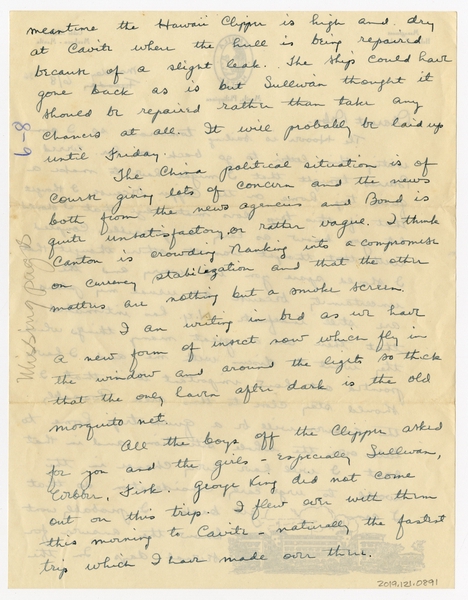 meantime the Hawaii Clipper is high and dry
at Cavite where the hull is being repaired
because of a slight leak. The ships could have
gone back as is but Sullivan thought it
should be repaired rather than take any
chances at all. It will probably be laid up
until Friday.
The China political situation is of
course giving lots of concern and the news
both from the news agencies and Bond is
quite unsatisfactory, or rather vague. I think
Canton is crowding Nanking into a compromise
on currency stabilization and that the other
matters are nothing but a smoke screen.
I am writing in bed as we have
a new form of insect now which fly in
the window and around the lights so thick
that the only haven after dark is the old
mosquito net.
All the boys off the Clipper asked
for you and the girls - especially Sullivan,
Fisk. George King did not come
out on this trip. I flew over with them
this morning to Cavite - naturally the fastest
trip which I have made over there.
6-8
Missing page B
2019.121.0891